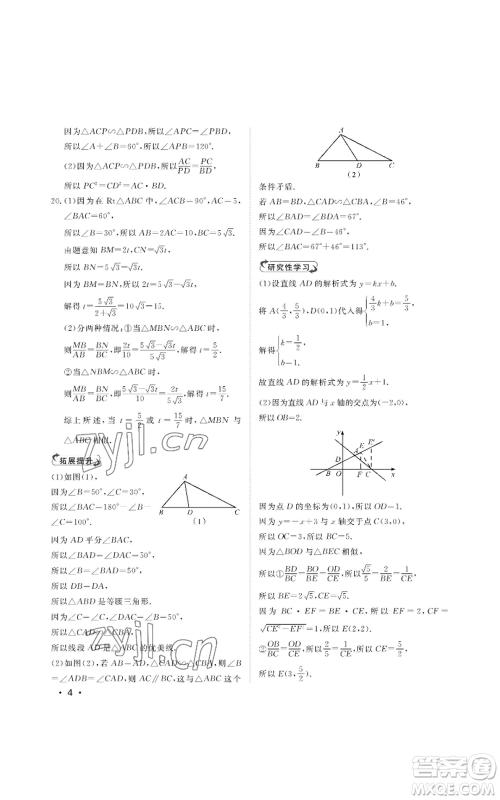 因为△ACP∽△PDB,所以∠APC=∠PBD,
所以∠A+∠B=60°,所以∠APB=120°.
(2)因为△ACP∽△PDB,所以AC/PD=PC/BD,
所以PC²=CD²=AC·BD.
20.(1)因为在Rt△ABC中,∠ACB=90°,AC=5,
∠B=30°,所以AB=2AC=10,BC=5√3.
由题意知BM=2t,CN=√3t,
所以BN=5√3-√3t.
因为BM=BN,所以2t=5√3-√3t,
解得t=5√3/(2+√3)=10√3-15.
(2)分两种情况:①当△MBN∽△ABC时,
则MB/AB=BN/BC,即2t/10=(5√3-√3t)/5√3,解得t=5/2.
②当△NBM∽△ABC时,
则MB/BC=BN/AB,即(5√3-√3t)/10=2t/5√3,解得t=15/7.
综上所述,当t=5/2或t=15/7时,△MBN与
△ABC相似.
拓展提升
(1)如图(1),
因为∠B=50°,∠C=30°,
所以∠BAC=180°-∠B-
∠C=100°.
A
B D C
(1)
因为AD平分∠BAC,
所以∠BAD=∠DAC=50°,
所以∠B=∠BAD=50°,
所以DB=DA,
所以△BAD是等腰三角形.
因为∠C=∠C,∠DAC=∠B=50°,
所以△CAD∽△CBA,
所以线段AD是△ABC的优美线.
(2)如图(2),若AB=AD,△CAD∽△CBA,则∠B
=∠ADB=∠CAD,所以AC∥BC,这与△ABC这个
· 4 ·
A
B D C
(2)
条件矛盾.
若AB=BD,
因为△CAD∽△CBA,所以∠CAD=∠B=46°.
因为AB=BD,所以∠BAD=∠BDA=67°,
所以∠BAC=67°+46°=113°.
研究性学习
(1)设直线AD的解析式为y=kx+b.
将A(4/3,5/3),D(0,1)代入得{4/3k+b=5/3, b=1,
解得{k=1/2, b=1.
故直线AD的解析式为y=1/2x+1.
(2)因为直线AD与x轴的交点为(-2,0),
所以OB=2.
因为点D的坐标为(0,1),所以OD=1.
因为y=-x+3与x轴交于点C(3,0),
所以OC=3,所以BC=5.
因为△BOD与△BEC相似,
所以①BD/BC=BO/BE=OD/CE,所以√5/5=2/BE=1/CE,
所以BE=2√5,CE=√5.
因为BC·EF=BE·CE,所以EF=2,CF=
√(CE²-EF²)=1,所以E(2,2).
②OB/BC=OD/CE,所以2/5=1/CE,所以CE=5/2,
所以E(3,5/2).